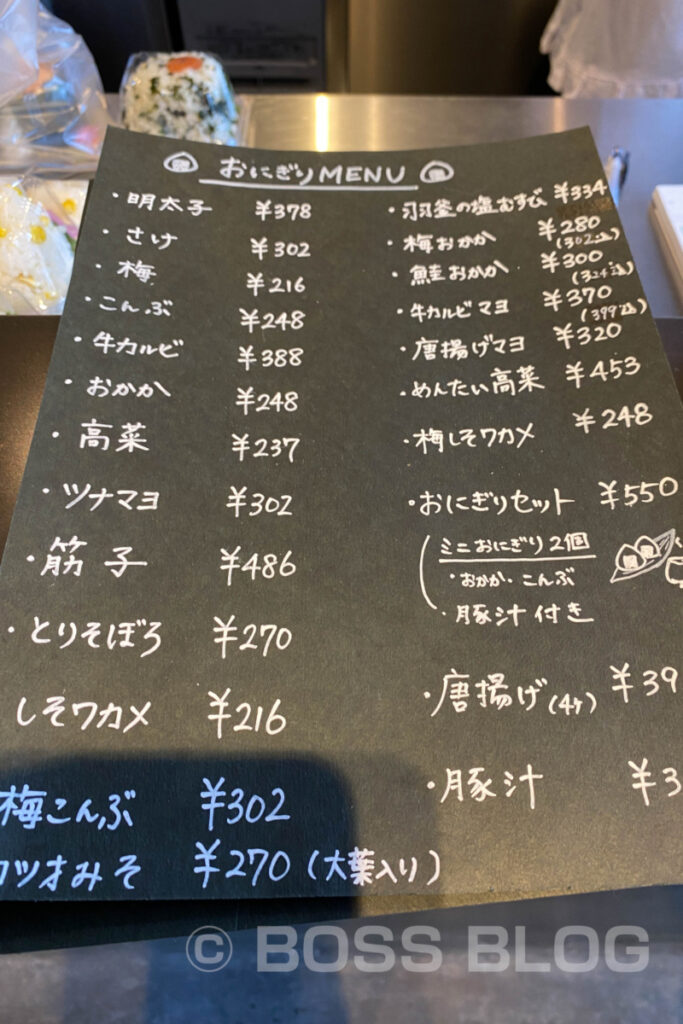 おにぎりMENU
・明太子 ¥378
・さけ ¥302
・梅 ¥216
・こんぶ ¥248
・牛カルビ ¥388
・おかか ¥248
・高菜 ¥237
・ツナマヨ ¥302
・筋子 ¥486
・とりそぼろ ¥270
しそワカメ ¥216
梅こんぶ ¥302
カツオみそ ¥270(大葉入り)
・羽釜の塩むすび ¥334
・梅おかか ¥280
(302込)
・鮭おかか ¥300
(324込)
・牛カルビマヨ ¥370
(399込)
・唐揚げマヨ ¥320
・めんたい高菜 ¥453
・梅しそワカメ ¥248
・おにぎりセット ¥550
ミニおにぎり2個
・おかか・こんぶ
・豚汁付き
・唐揚げ(4ヶ) ¥39
・豚汁 ¥3
© BOSS BLOG